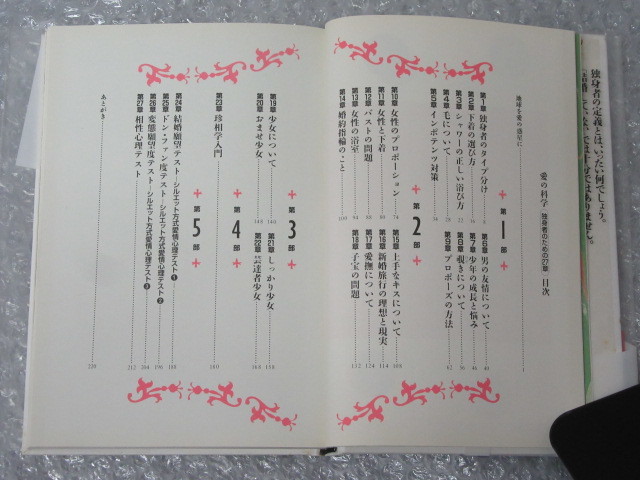 独身者の定義とは、いったい何でしょう。
愛の科学 独身者のための27章 目次
地球を愛の惑星に 1
第1部
第1章 独身者のタイプ分け 6
第2章 下着の選び方 14
第3章 シャワーの正しい浴び方 22
第4章 毛について 28
第5章 インポテンツ対策 34
第6章 男の友情について 40
第7章 少年の成長と悩み 46
第8章 覗きについて 56
第9章 プロポーズの方法 62
第2部
第10章 女性のプロポーション 74
第11章 女性と下着 80
第12章 バストの問題 88
第13章 女性の浴室 94
第14章 婚約指輪のこと 100
第15章 上手なキスについて 108
第16章 新婚旅行の理想と現実 114
第17章 愛撫について 124
第18章 子宝の問題 132
第3部
第19章 少女について 140
第20章 おませ少女 146
第21章 しっかり少女 150
第22章 芸達者少女 160
第4部
第23章 珍相学入門 180
第5部
第24章 結婚願望テスト―シルエット方式愛情心理テスト❶ 188
第25章 ドン・ファン度テスト―シルエット方式愛情心理テスト❷ 196
第26章 変態願望度テスト―シルエット方式愛情心理テスト❸ 204
第27章 相性心理テスト 212
あとがき 220